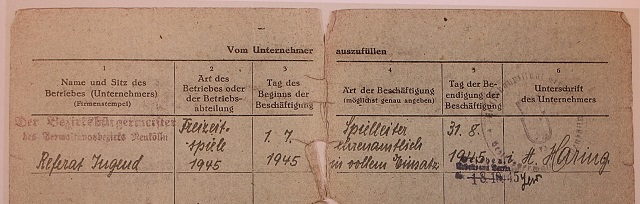 Vom Unternehmer auszufüllen
1 2 3 4 5 6
Name und Sitz des
Betriebes (Unternehmers)
(Firmenstempel)
Art des
Betriebes oder
der Betriebs-
abteilung
Tag des
Beginns der
Beschäftigung
Art der Beschäftigung
(möglichst genau angeben)
Tag der Be-
endigung der
Beschäftigung
Unterschrift
des Unternehmers
Der Bezirksbürgermeister
des Verwaltungsbezirks Neukölln
Referat Jugend
Freizeit-
spiele
1945
1. 7.
1945
Spielleiter
ehrenamtlich
in vollem Einsatz
31. 8.
1945
i. A. Haring